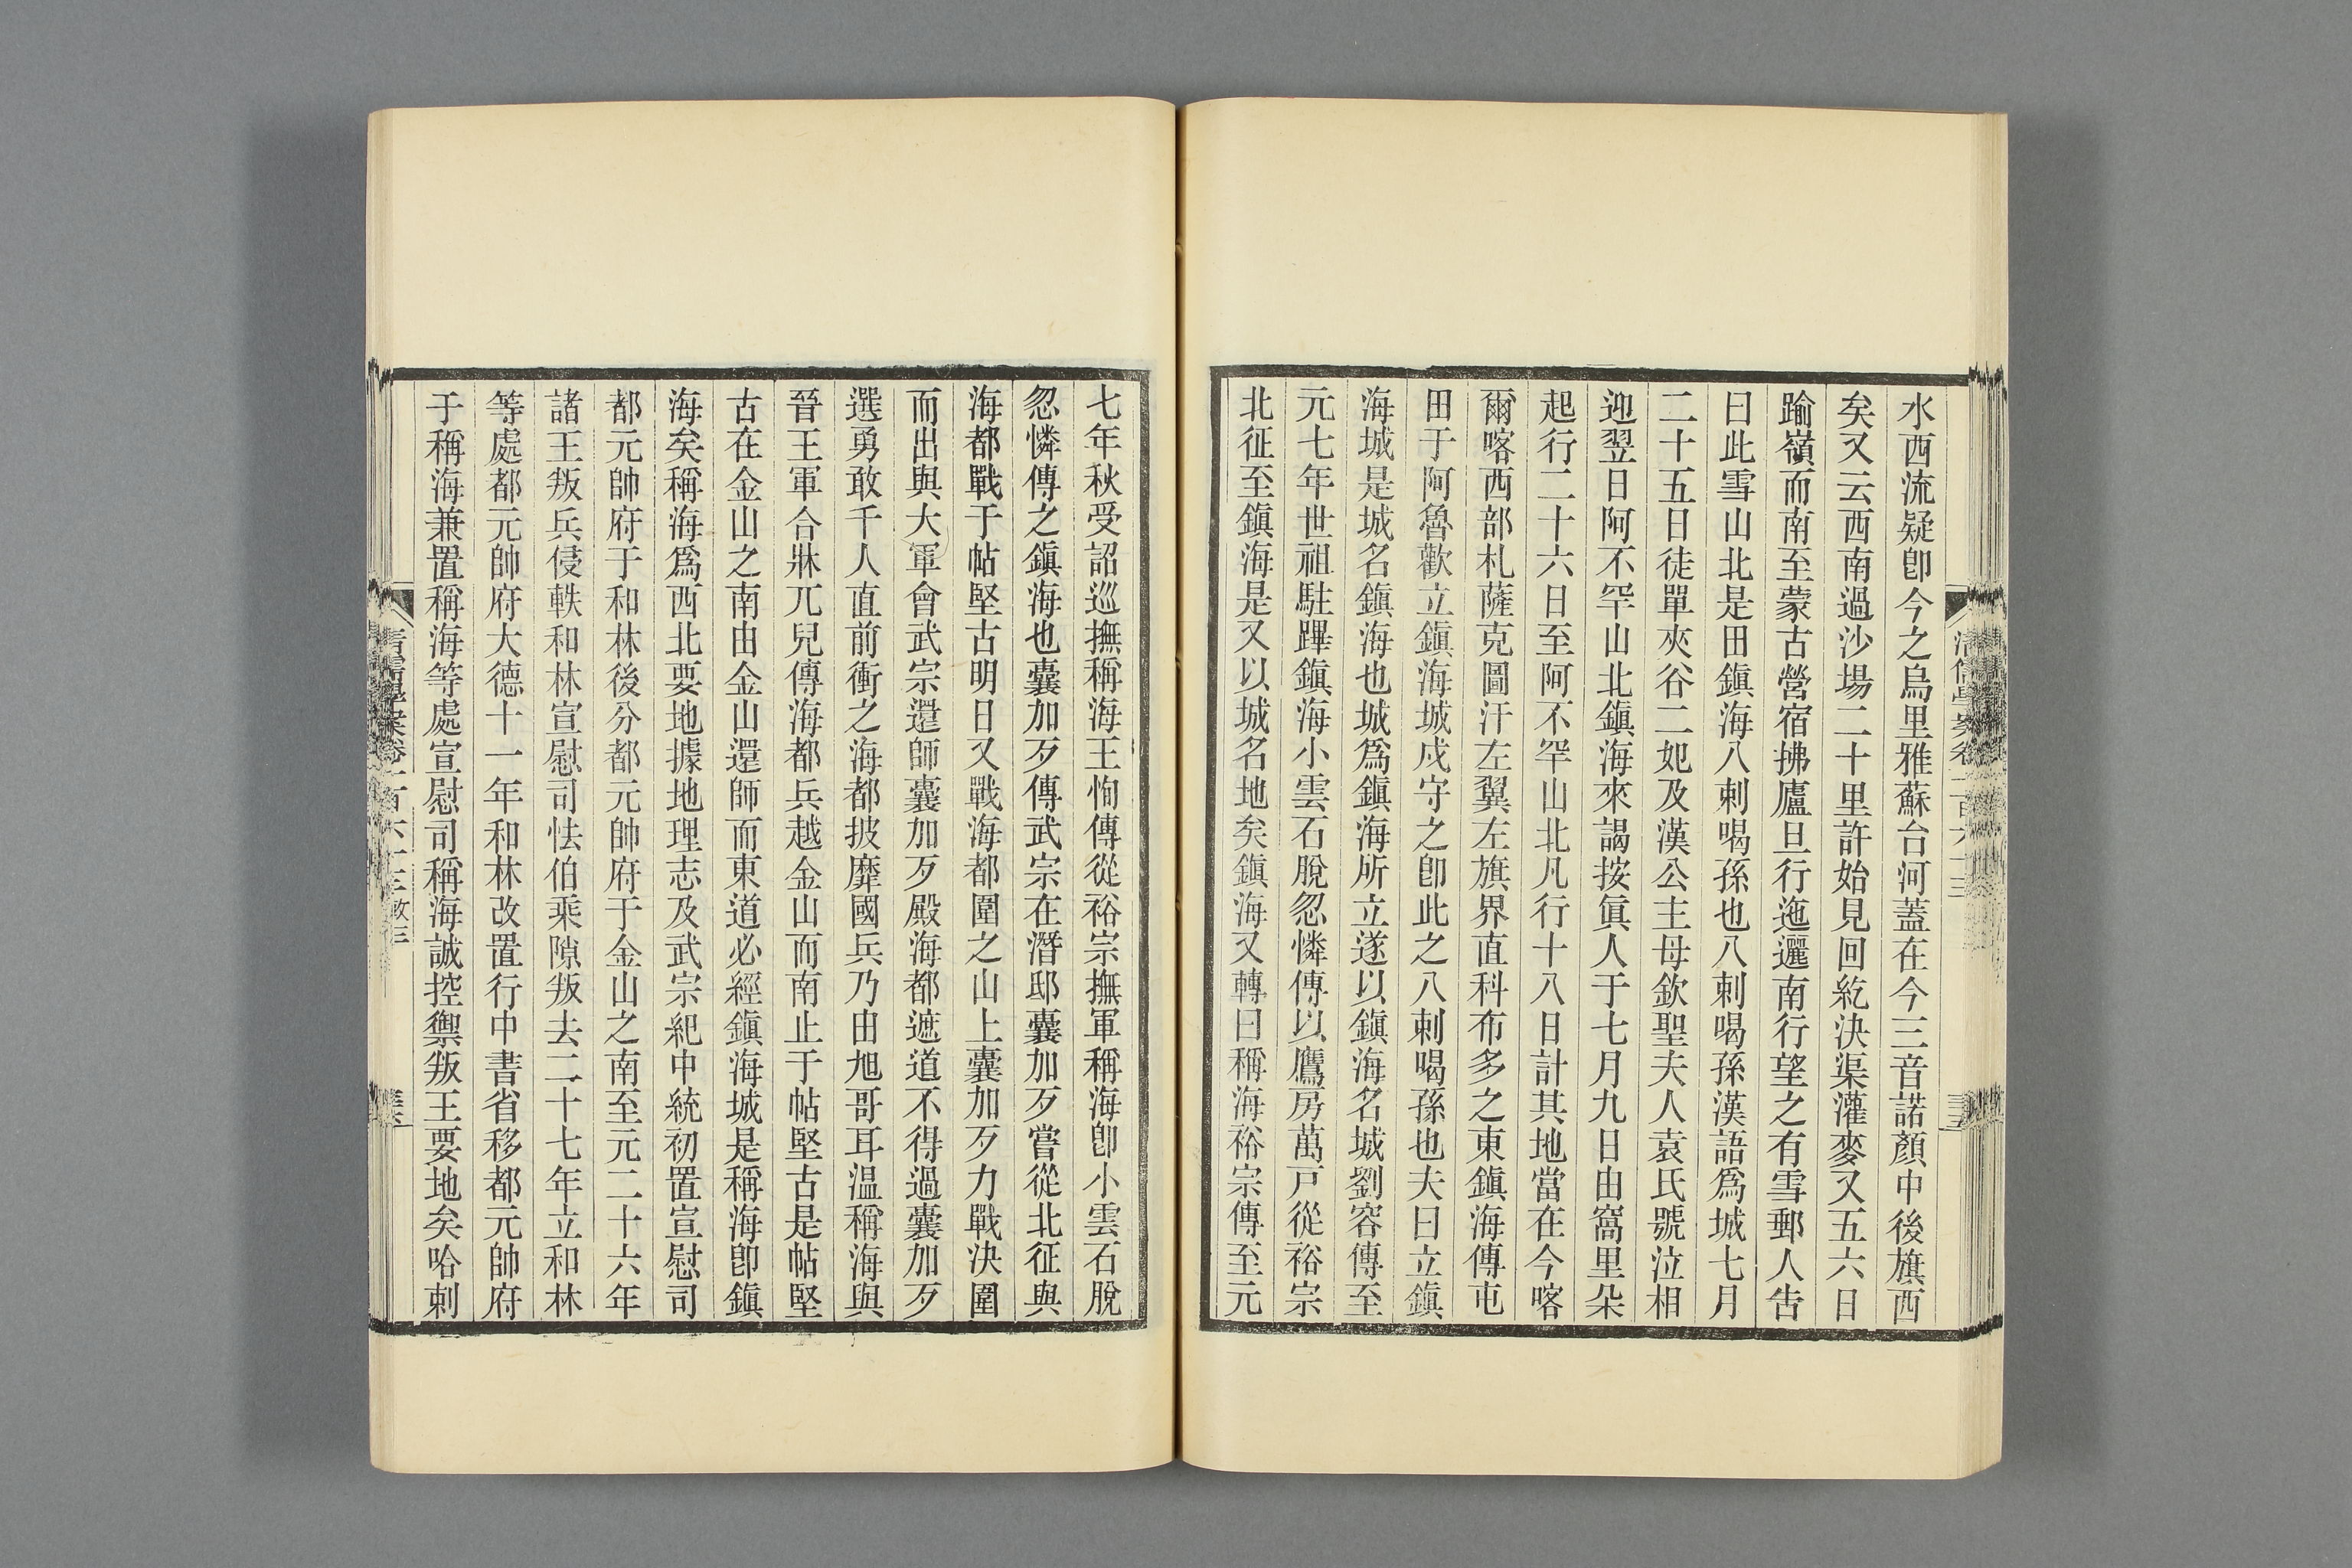 水西流疑卽今之烏里雅蘇台河蓋在今三音諾顏中後旗西
矣又云西南過沙場二十里許始見回紇決渠灌麥又五六日
踰嶺而南至蒙古營宿拂廬旦行迤邐南行望之有雪郵人告
曰此雪山北是田鎭海八剌喝孫也八剌喝孫漢語爲城七月
二十五日徒單夾谷二妃及漢公主母欽聖夫人袁氏號泣相
迎翌日阿不罕山北鎭海來謁按眞人于七月九日由窩里朵
起行二十六日至阿不罕山北凡行十八日計其地當在今喀
爾喀西部札薩克圖汗左翼左旗界直科布多之東鎭海傳屯
田于阿魯歡立鎭海城戍守之卽此之八剌喝孫也夫曰立鎭
海城是城名鎭海也城爲鎭海所立遂以鎭海名城劉容傳至
元七年世祖駐蹕鎭海小雲石脫忽憐傳以鷹房萬戸從裕宗
北征至鎭海是又以城名地矣鎭海又轉曰稱海裕宗傳至元
七年秋受詔巡撫稱海王恂傳從裕宗撫軍稱海卽小雲石脫
忽憐傳之鎭海也囊加歹傳武宗在潛邸囊加歹嘗從北征與
海都戰于帖堅古明日又戰海都圍之山上囊加歹力戰決圍
而出與大軍會武宗還師囊加歹殿海都遮道不得過囊加歹
選勇敢千人直前衝之海都披靡國兵乃由旭哥耳温稱海與
晉王軍合牀兀兒傳海都兵越金山而南止于帖堅古是帖堅
古在金山之南由金山還師而東道必經鎭海城是稱海卽鎭
海矣稱海爲西北要地據地理志及武宗紀中統初置宣慰司
都元帥府于和林後分都元帥府于金山之南至元二十六年
諸王叛兵侵軼和林宣慰司怯伯乘隙叛去二十七年立和林
等處都元帥府大德十一年和林改置行中書省移都元帥府
于稱海兼置稱海等處宣慰司稱海誠控禦叛王要地矣哈剌